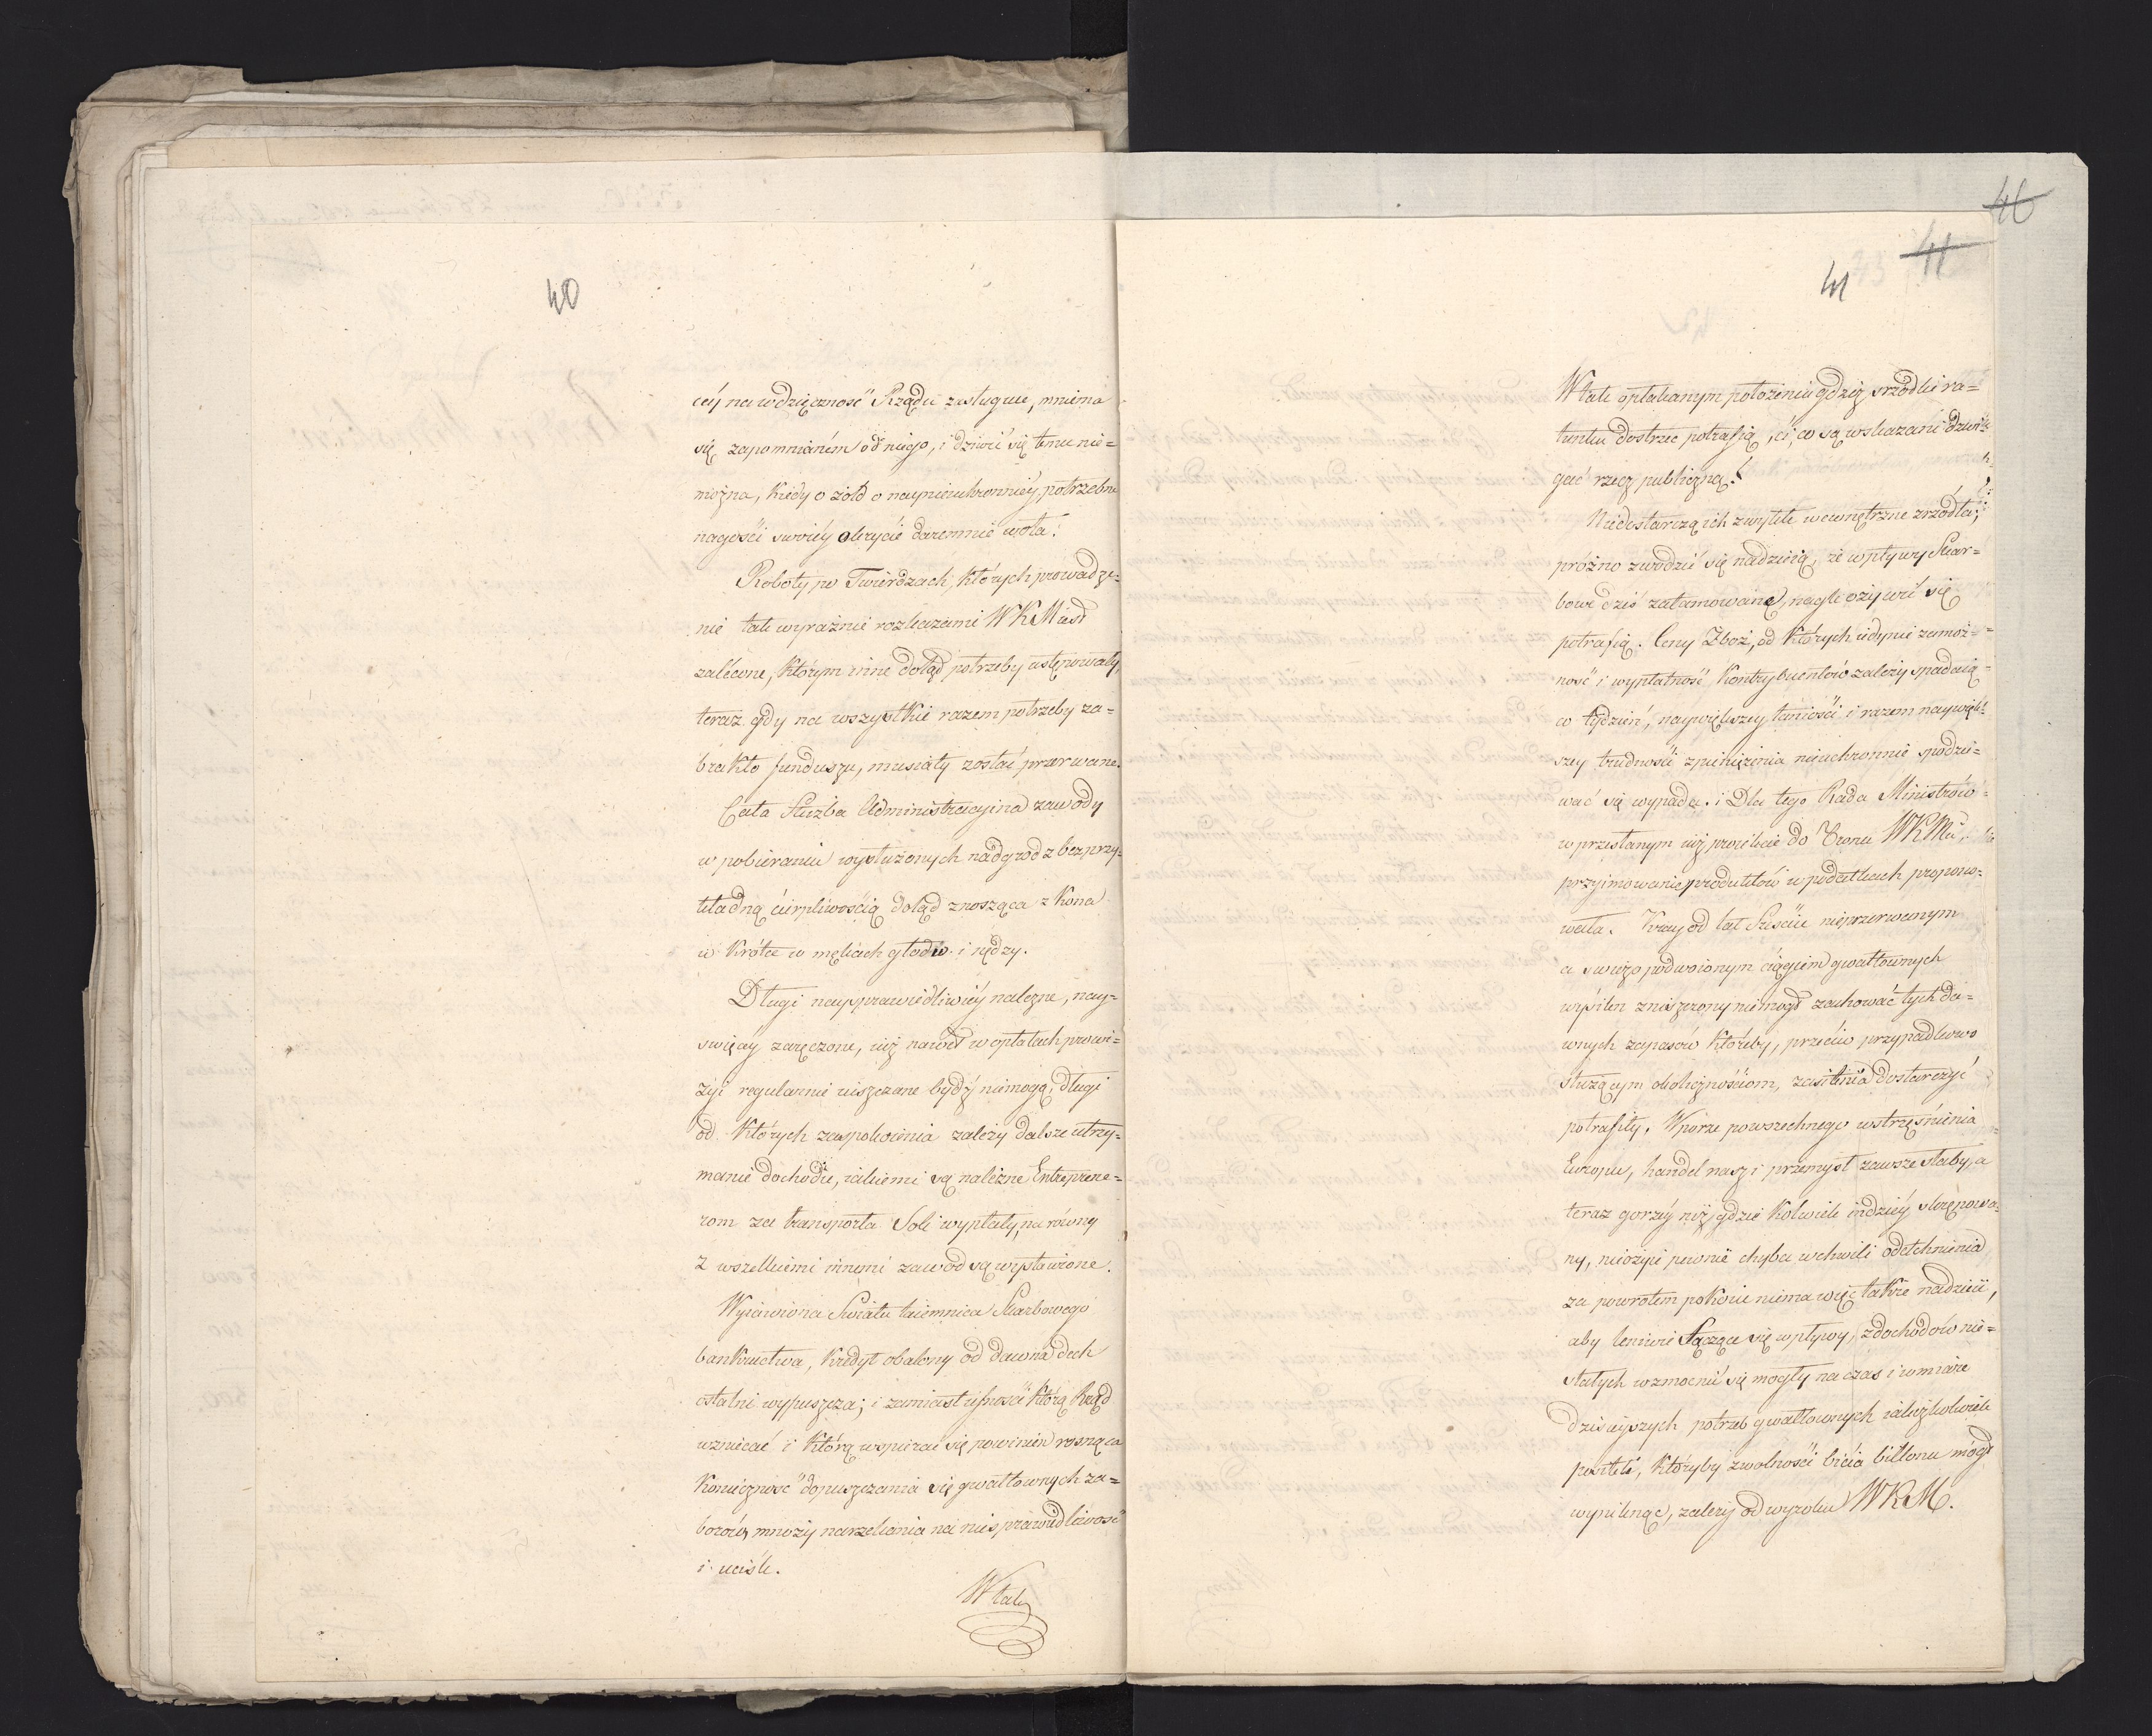 40
céy na wdzięczność Rządu zasługuie, mniema
się zapomnianém od niego, i dziwić się temu nie=
można, kiedy o żołd o naynieuchronniéy potrzebne
nagości swoiéy okrycie daremnie woła.
Roboty po Twierdzach, których prowadze=
nie tak wyraźnie rozkazami WKMści
zalécone, którym inne dotąd potrzeby ustępowały,
teraz gdy na wszystkie razem potrzeby za=
brakło funduszu, musiały zostać przerwane.
Cała Służba Administracyina zawody
w pobieraniu wysłużonych nadgrod z bezprzy=
kładną cierpliwością dotąd znosząca z kona
w krótce w mękach głodu i nędzy.
Długi naysprawiedliwiéy należne, nay=
święciéy zaręczone, iuż nawet w opłatach prowi=
zyi regularnie uiszczane bydź niemogą, długi
od których zaspokoienia zależy dalsze utrzy=
manie dochodu, iakiemi są należne Entreprene=
rom za transporta Soli wypłaty, na równy
z wszelkiemi innemi zawod są wystawione.
Wyiawiona Światu taiemnica Skarbowego
bankructwa, kredyt obalony od dawna dech
ostatni wypuszcza; i zamiast ufności którą Rząd
wzniecać i którą wspierać się powinien rosnąca
konieczność dopuszczania się gwałtownych za=
borów, mnoży narzekania na niesprawiedliwość
i ucisk.
W tak
46
41
41
W tak opłakanym położeniu gdzież srzodki ra=
tunku dostrzec potrafią, ci, co są wskazani dźwi=
gać rzecz publiczną.!
Niedostarczą ich zwykłe wewnętrzne zrzódła;
próżno zwodzić się nadzieią, że wpływy Skar=
bowe dziś zatamowane, nagle ożywić się
potrafią. Ceny Zboż, od których iedynie zamoż=
ność i wypłatność kontrybuentów zależy spadaią
co tydzień, naywiększey taniości i razem naywięk=
szey trudności spieniężenia nieuchronnie spodzie=
wać się wypada. i Dla tego Rada Ministrów
w przesłanym iuż proiekcie do Tronu WKMci
przyimowanie produktów w podatkach propono=
wała. Kray od lat Sześciu nieprzerwanym
a świeżo podwoionym ciągiem gwałtownych
wysileń zniszczony niemogł zachować tych da=
wnych zapasów któreby, przeciw przypadkowo
służącym okolicznościom, zasilenia dostarczyć
potrafiły. W porze powszechnego wstrząśnienia
Europy, handel nasz i przemysł zawsze słaby, a
teraz gorzéy niż gdzie kolwiek indziéy skrępowa=
ny, nieożyie pewnie chyba w chwili odetchnienia
za powrotem pokoiu niema więc także nadziei,
aby leniwie Sączące się wpływy, z dochodów nie=
stałych wzmocnić się mogły na czas i w miare
dzisieyszych potrzeb gwałtownych iakiżkolwiek
posiłek, któryby z wolności bicia billonu mógł
wyniknąć, zależy od wyroku WKM.